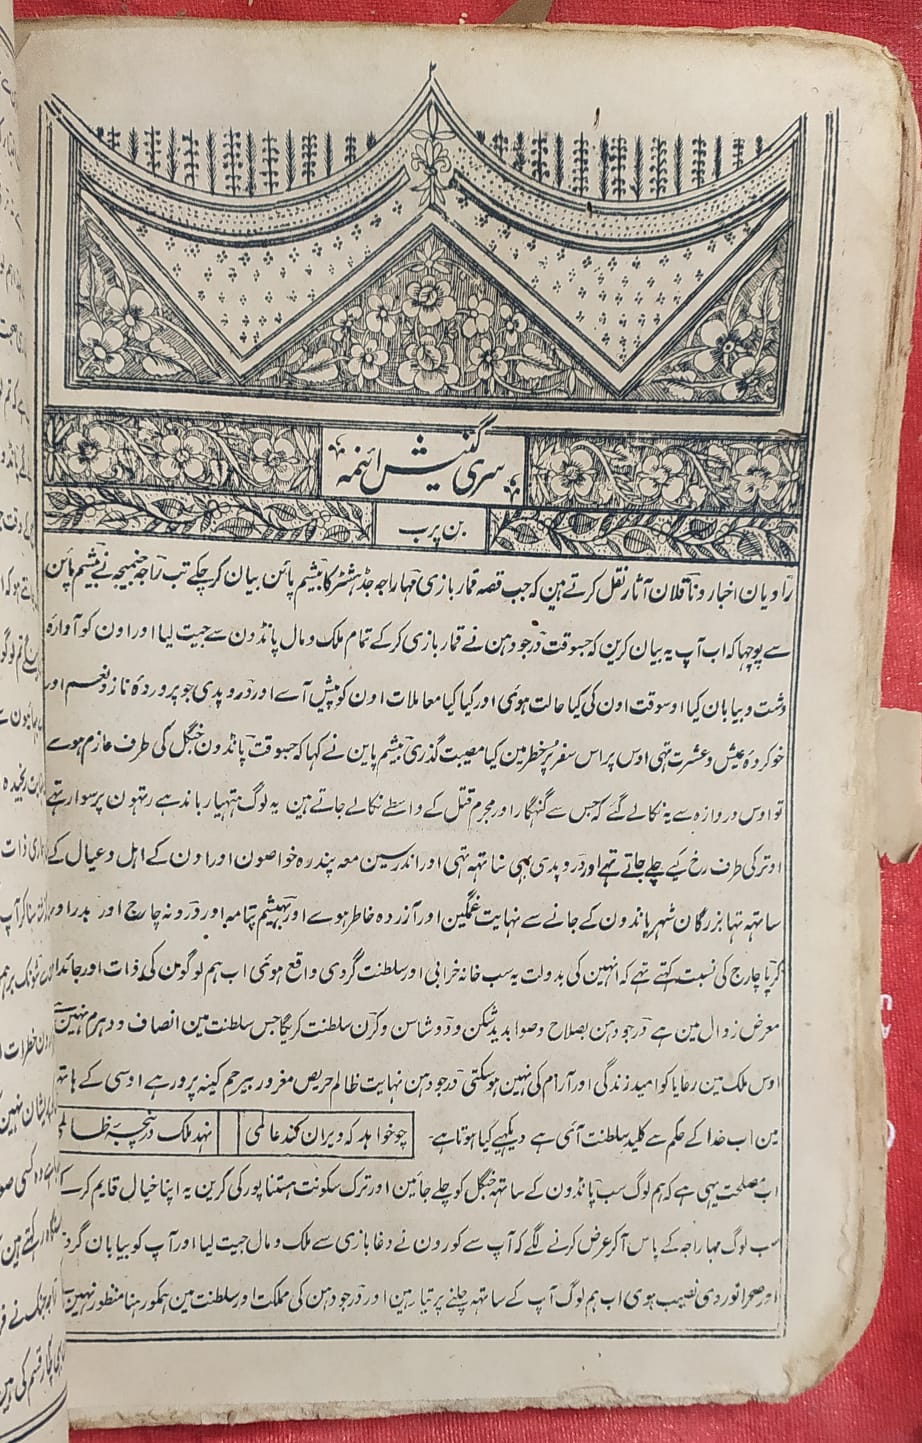 سری گنیش ائنمہ
بن پرب
راویان اخبار و ناقلان آثار نقل کرتے ہین کہ جب قصہ قمار بازی مہاراجہ جدہشٹر کا بیشم پائن بیان کر چکے تب راجہ جنمیجہ نے بیشم پائن
سے پوچہا کہ اب آپ یہ بیان کرین کہ جسوقت درجودہن نے قمار بازی کرکے تمام ملک و مال پانڈون سے جیت لیا اور اون کو آوارہ
دشت و بیابان کیا اوسوقت اون کی کیا حالت ہوئی اور کیا کیا معاملات اون کو پیش آے اور دروپدی جو پروردہ ناز و نعم اور
خوکردہ عیش و عشرت تہی اوس پر اس سفر پر خطر مین کیا مصیبت گذری بیشم پاین نے کہا کہ جسوقت پانڈون جنگل کی طرف عازم ہوے
تو اوس دروازہ سے یہ نکالے گئے کہ جس سے گنہگار اور مجرم قتل کے واسطے نکالے جاتے ہین یہ لوگ ہتہیار باندہے رتہون پر سوار تہے
اوتر کی طرف رخ کیے چلے جاتے تہے اور دروپدی بہی ساتہہ تہی اور اندرسین معہ پندرہ خواصون اور اون کے اہل و عیال کے
ساتہہ تہا بزرگان شہر پانڈون کے جانے سے نہایت غمگین اور آزردہ خاطر ہوے اور بہیشم پتامہ اور درونہ چارج اور بدر اور
کرپا چارج کی نسبت کہتے تہے کہ انہین کی بدولت یہ سب خانہ خرابی اور سلطنت گردی واقع ہوئی اب ہم لوگون کی ذات اور جائداد
معرض زوال مین ہے درجودہن بصلاح و صوابدید شکن و دوشاسن و کرن سلطنت کریگا جس سلطنت مین انصاف و دہرم نہین ہے
اوس ملک مین رعایا کو امید زندگی اور آرام کی نہین ہوسکتی درجودہن نہایت ظالم حریص مغرور بیرحم کینہ پرور ہے اوسی کے ہاتہہ
مین اب خدا کے حکم سے کلید سلطنت آئی ہے دیکہیے کیا ہوتا ہے۔ چو خواہد کہ ویران کند عالمی نہد ملک در پنجہ ظالمی
اب صلحت یہی ہے کہ ہم لوگ سب پانڈون کے ساتہہ جنگل کو چلے جائین اور ترک سکونت ہستناپور کی کرین یہ اپنا خیال قایم کرکے
سب لوگ مہاراجہ کے پاس آکر عرض کرنے لگے کہ آپ سے کورون نے دغابازی سے ملک و مال جیت لیا اور آپ کو بیابان گردی
اور صحرا نوردی نصیب ہوی اب ہم لوگ آپ کے ساتہہ چلنے پر تیار ہین اور درجودہن کی مملکت اور سلطنت مین ہمکو رہنا منظور نہین ہے